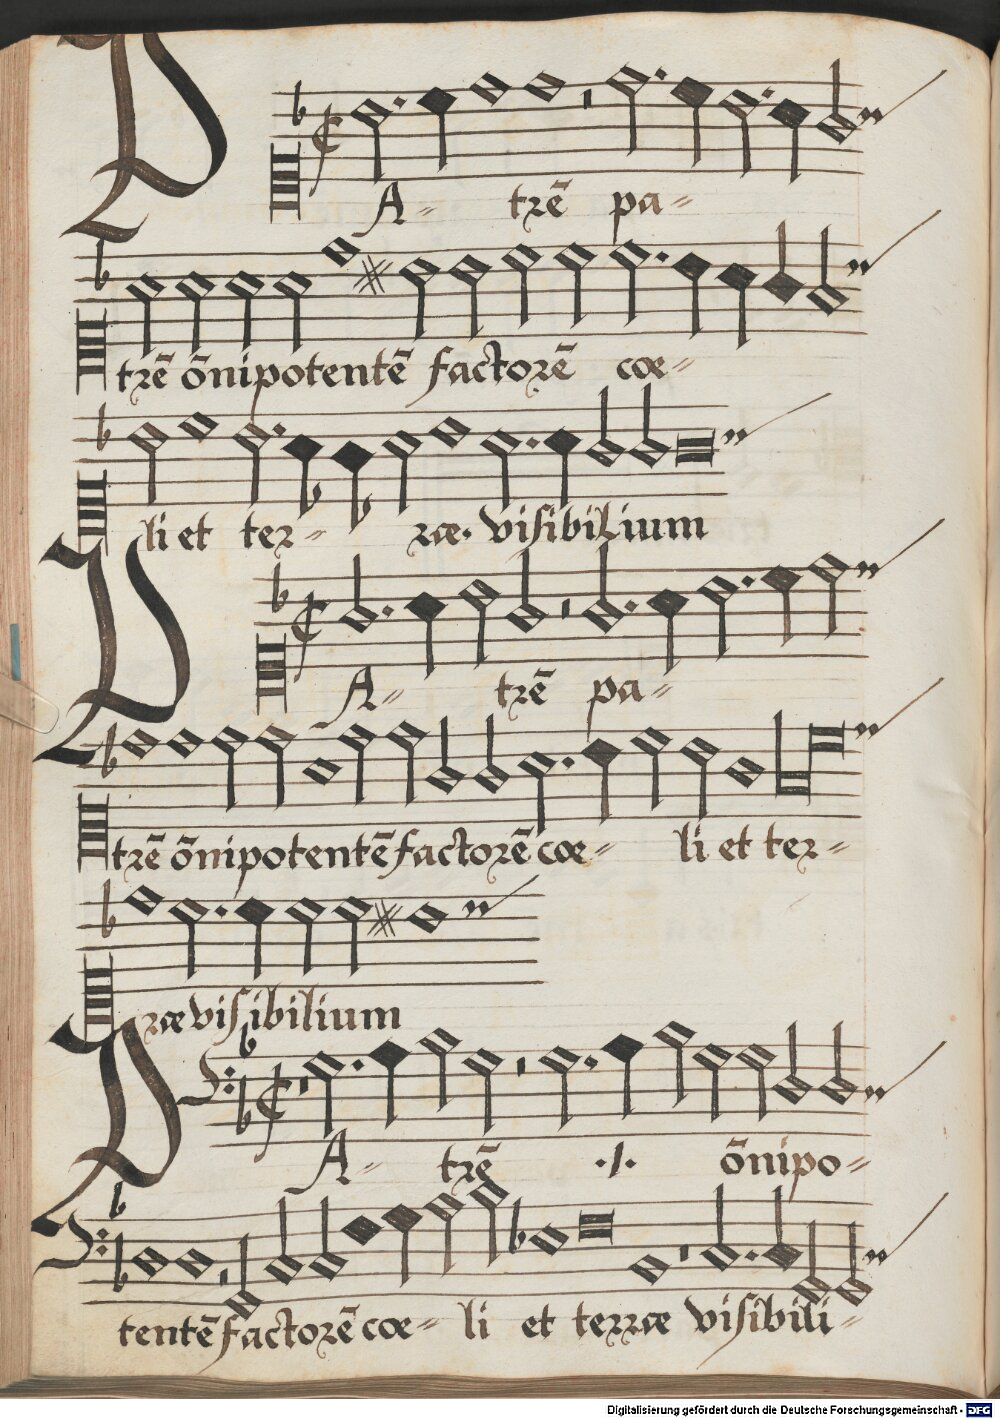 PA- trē pa-
trē ōnipotentē factorē cœ-
li et ter- ræ. visibilium
PA- trē pa-
trē ōnipotentē factorē cœ- li et ter-
ræ visibilium
PA- trē ·/· ōnipo-
tentē factorē cœ- li et terræ visibili-
Digitalisierung gefördert durch die Deutsche Forschungsgemeinschaft - DFG